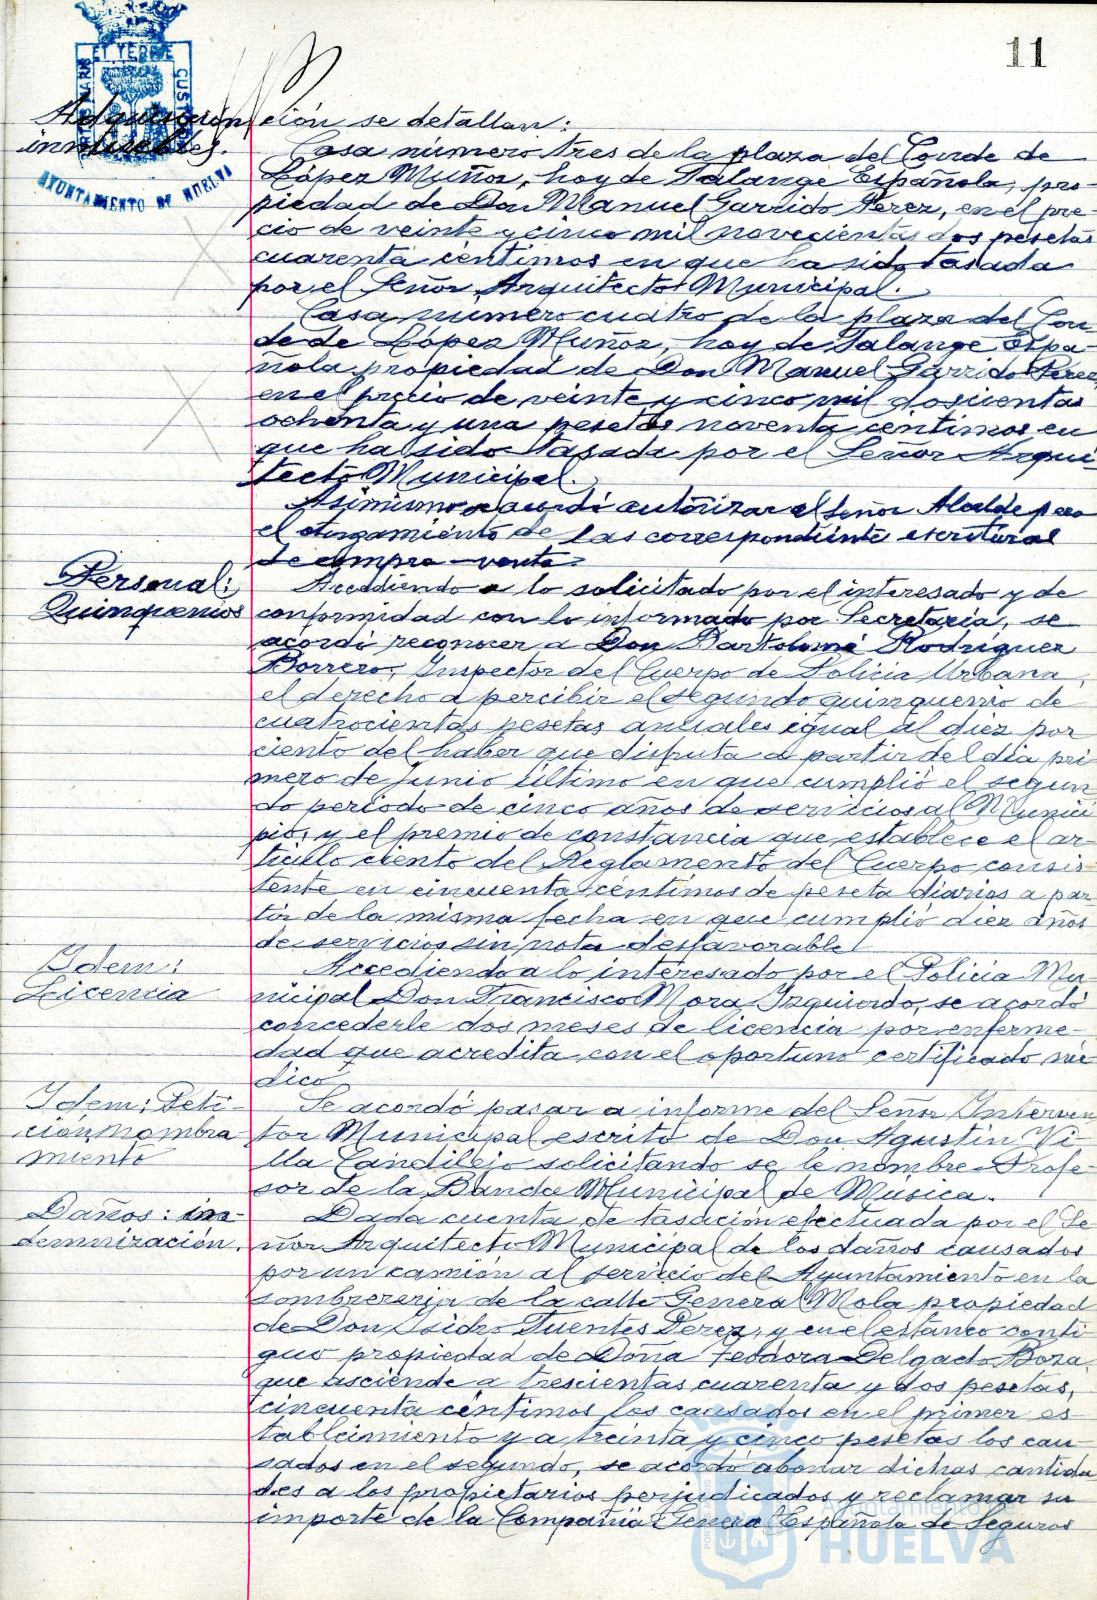 11
ET TERRE
CUS
AYUNTAMIENTO DE HUELVA
Adquisición
inmuebles.
ción se detallan:
Casa número tres de la plaza del Conde de
López Muñoz, hoy de Falange Española, pro-
piedad de Don Manuel Garrido Perez, en el pre-
cio de veinte y cinco mil novecientas dos pesetas
cuarenta céntimos en que ha sido tasada
por el Señor Arquitecto Municipal.
Casa número cuatro de la plaza del Con-
de de López Muñoz, hoy de Falange Espa-
ñola propiedad de Don Manuel Garrido Perez,
en el precio de veinte y cinco mil doscientas
ochenta y una pesetas noventa céntimos en
que ha sido tasada por el Señor Arqui-
tecto Municipal.
Asimismo se acordó autorizar al Señor Alcalde para
el otorgamiento de las correspondiente escrituras
de compra-venta.
Personal:
Quinquenios
Accediendo a lo solicitado por el interesado y de
conformidad con lo informado por Secretaría, se
acordó reconocer a Don Bartolomé Rodríguez
Borrero, Inspector del Cuerpo de Policía Urbana,
el derecho a percibir el segundo quinquenio de
cuatrocientas pesetas anuales igual al diez por
ciento del haber que disfruta a partir del día pri-
mero de junio último en que cumplió el segun
do período de cinco años de servicios al Munici
pio, y el premio de constancia que establece el ar-
tículo ciento del Reglamento del Cuerpo consis-
tente en cincuenta céntimos de peseta diarios a par
tir de la misma fecha en que cumplió diez años
de servicios sin nota desfavorable.
Idem:
Licencia
Accediendo a lo interesado por el Policía Mu-
nicipal Don Francisco Mora Izquierdo, se acordó
concederle dos meses de licencia por enferme-
dad que acredita con el oportuno certificado mé
dico
Idem: Peti-
ción nombra
miento
Se acordó pasar a informe del Señor Interven
tor Municipal escrito de Don Agustín Vi-
lla Candilejo solicitando se le nombre Profe-
sor de la Banda Municipal de Música.
Daños: in-
demnización.
Dada cuenta de tasación efectuada por el Se-
ñor Arquitecto Municipal de los daños causados
por un camión al servicio del Ayuntamiento en la
sombrerería de la calle General Mola propiedad
de Don Isidro Fuentes Perez, y en el estanco conti-
guo propiedad de Doña Teodora Delgado Boza
que asciende a trescientas cuarenta y dos pesetas,
cincuenta céntimos los causados en el primer es-
tablecimiento y a treinta y cinco pesetas los cau-
sados en el segundo, se acordó abonar dichas cantida
des a los propietarios perjudicados y reclamar su
importe de la Compañía General Española de Seguros
Ayuntamiento de
HUELVA